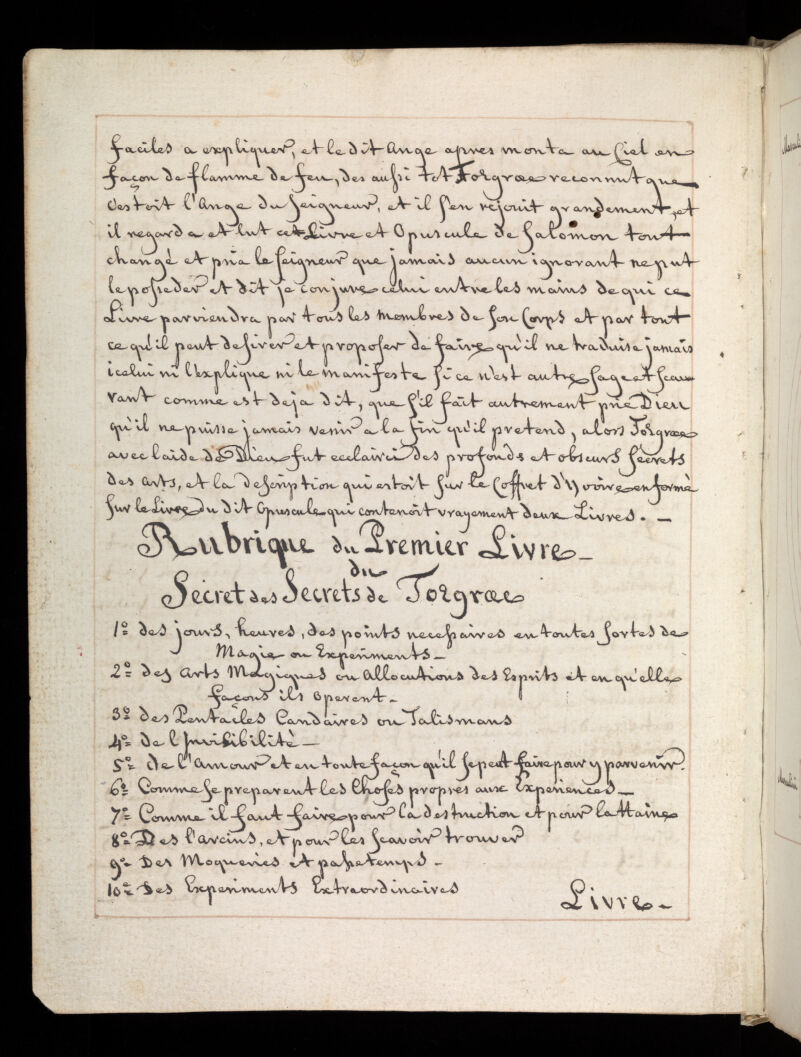 faciles a expliquer, et le dit Ange apres monta au Ciel en
façon de flamme de feu, des aussi tot Tozgræc reconnut que
C'estoit l'Ange du Seigneur, et il s'en rejouit grandement, et
il regarda et lut cet Livre et Opuscule de Salomon tout
changé et pria le Seigneur que jamais aucun ignorant ne put
le posseder et dit je conjure celui entre les mains de qui ce
Livre parviendra par tous les membres de son Corps et par tout
ce qu'il peut desirer et proposer de faire qu'il ne traduise jamais
icelui ni l'explique ni le manifeste si ce n'est autre sage et sca
vant comme est deja dit, que s'il fait autrement prie Dieu
qu'il ne puisse jamais venir a la fin qu'il pretend, alors Tozgræc
avec laide de Dieu fut ecclairci des profonds et obscurs sècrets
des Arts, et la description qui estoit sur le Coffret d'Yvoire enfermé
sur le Livre du dit Opuscule qui contenoit vrayement deux Livres. -
Rubrique du Premier Livre -
du
Sècret des Secrets de Tozgræc
1º des jours, heures, des points necessaires en toutes sortes de
Magie ou Experiments -
2º des Arts Magiques ou Allocutions des Esprits et en qu'elle
façons ils operent -
3º des Pentacles Candaires ou Talismans
4º de l'Invisibilité -
5º de l'Amour et en toute façon qu'il se peut faire pour y parvenir.
6º Comme se preparent les Choses propres aux Expériences -
7º Comme il faut faire pour la destruction et pour la Haine
8º Des l'arcins, et pour les scavoir trouver
9º Des Moqueries et passetemps -
10º Des Experiments Extraordinaires
Livre -